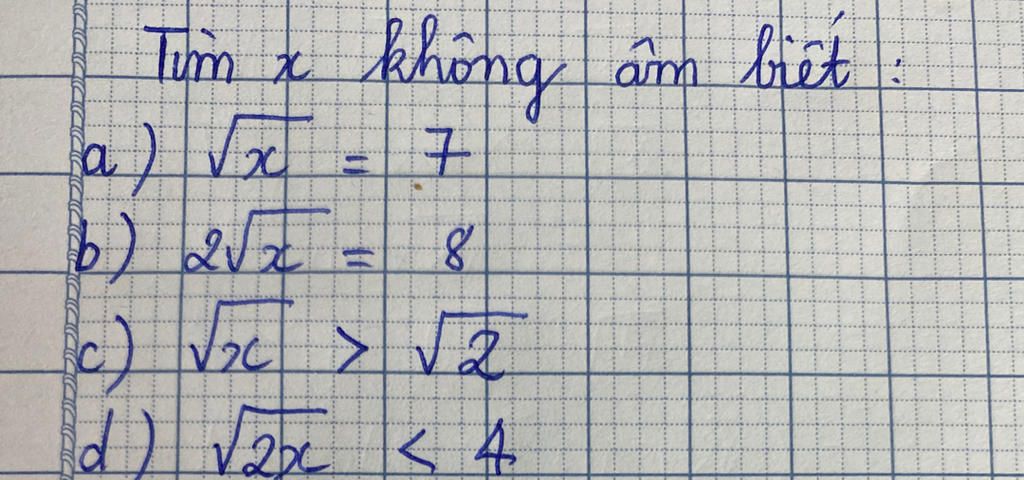 Tìm x không âm biết :
a) √x = 7
b) 2√x = 8
c) √x > √2
d) √2x < 4